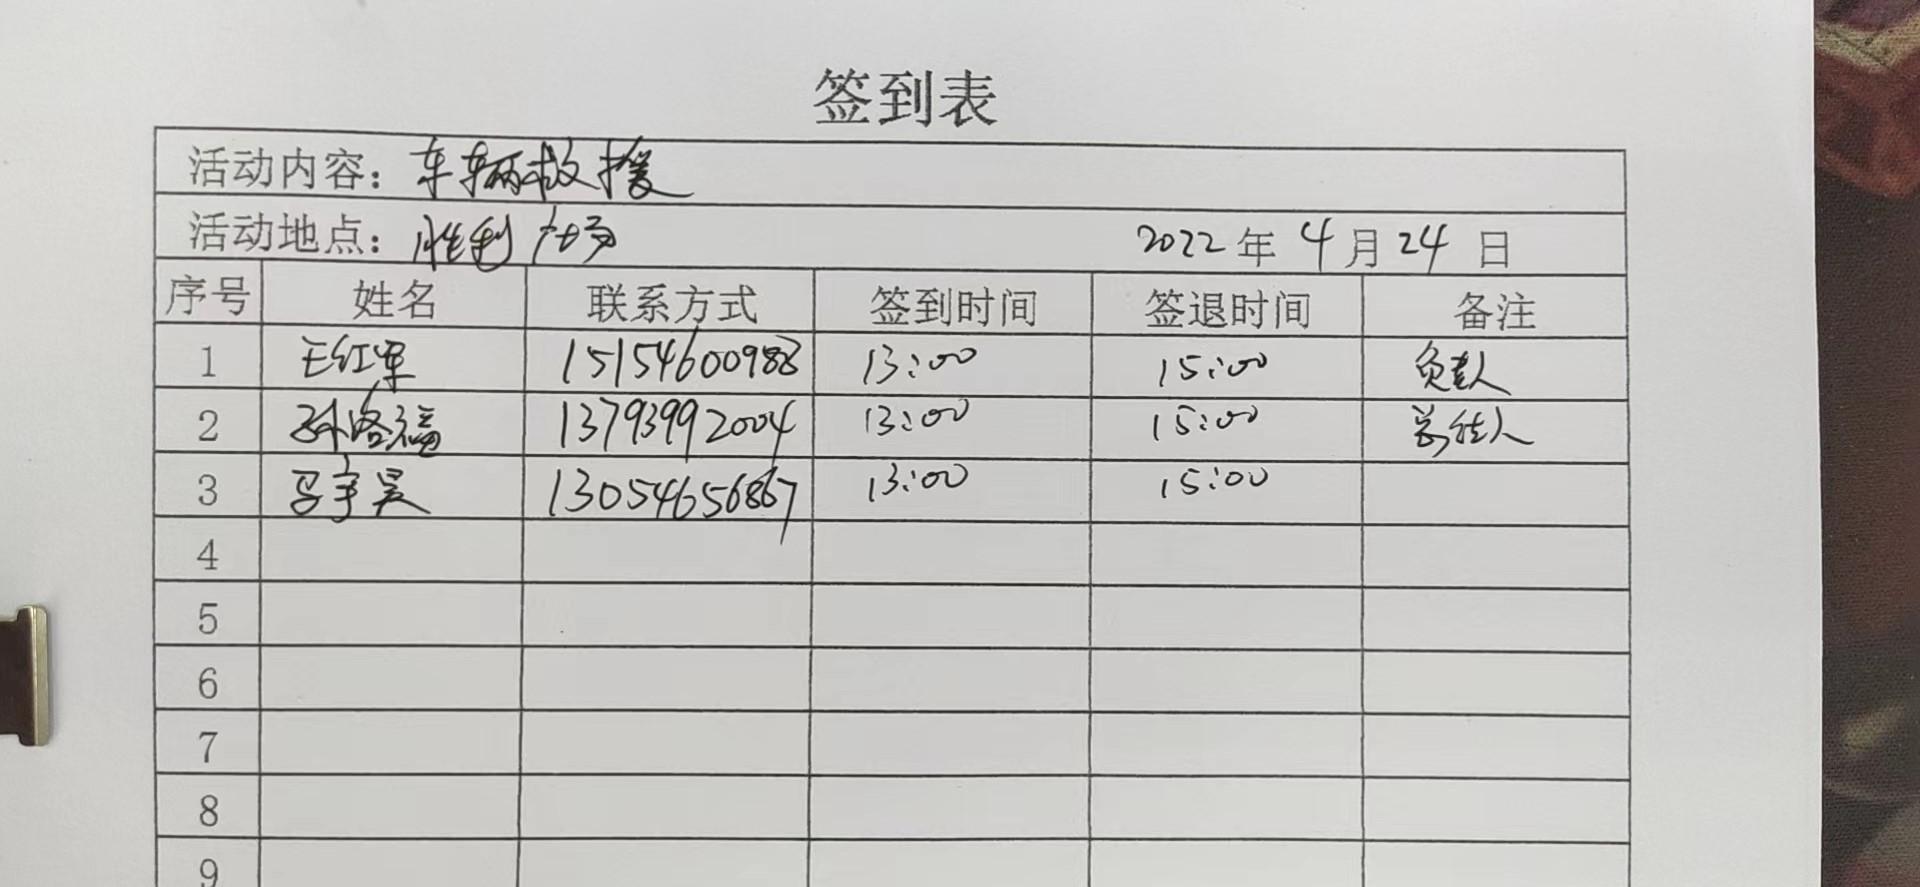 签到表
活动内容：车辆救援
活动地点：胜利广场 2022年4月24日
序号 姓名 联系方式 签到时间 签退时间 备注
1 王红军 15154600988 13:00 15:00 负责人
2 孙洛福 13793992004 13:00 15:00
3 马宇昊 13054656867 13:00 15:00
4
5
6
7
8
9